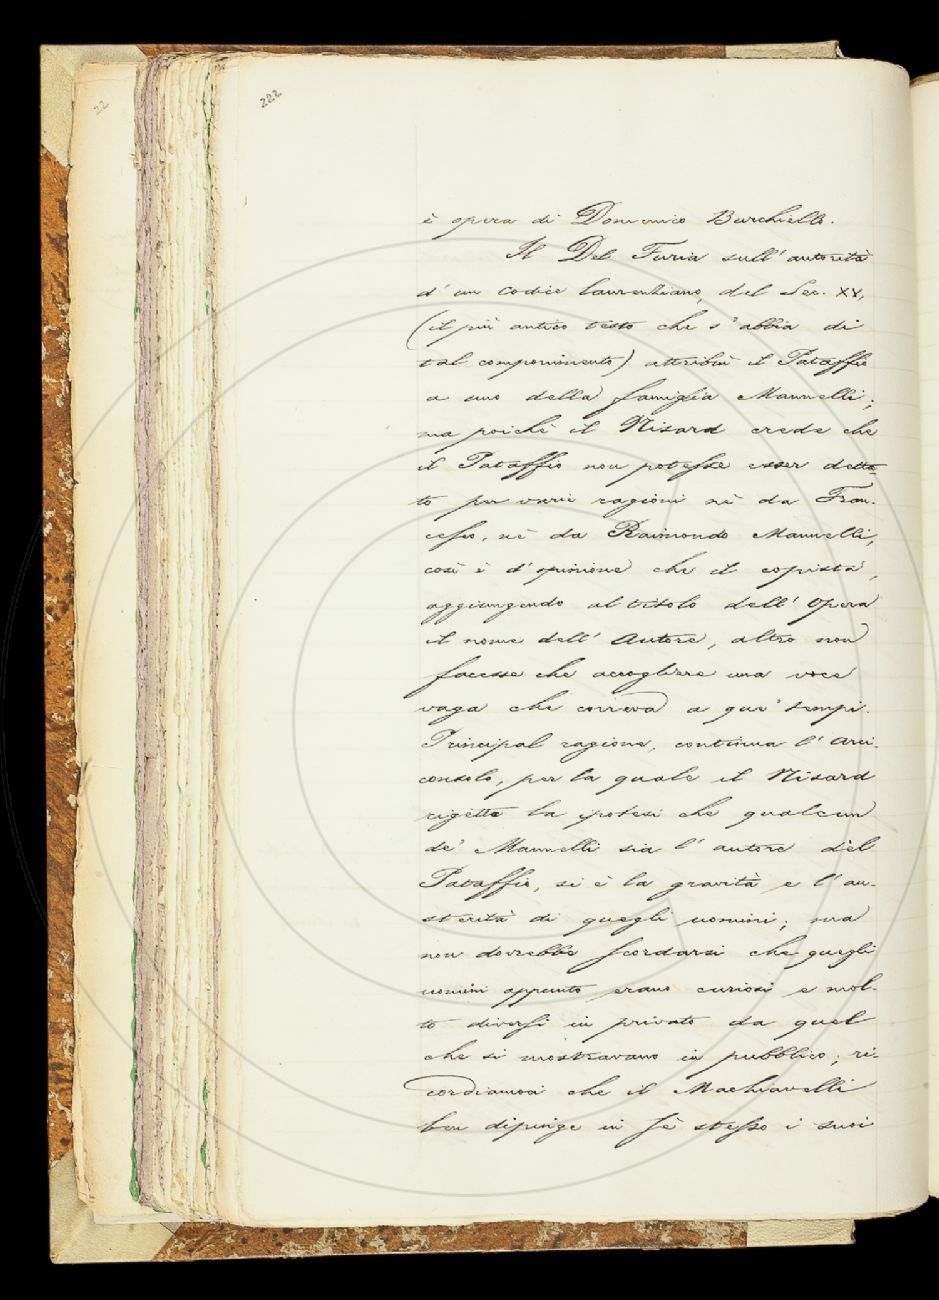 22
222
è opera di Domenico Burchiello.
Il Del Furia sull' autorità
d' un codice laurenziano, del Sec. XV,
(il più antico testo che s' abbia di
tal componimento) attribuì il Pataffio
a uno della famiglia Mannelli;
ma poichè il Nisard crede che
il Pataffio non potesse esser detta-
to per varie ragioni nè da Fran-
cesco, nè da Raimondo Mannelli,
così è d' opinione che il copista,
aggiungendo al titolo dell' Opera
il nome dell' Autore, altro non
facesse che accogliere una voce
vaga che correva a que' tempi.
Principal ragione, continua l' Arci-
consolo, per la quale il Nisard
rigetta la ipotesi che qualcun
de' Mannelli sia l' autore del
Pataffio, si è la gravità e l' au-
sterità di quegli uomini; ma
non dovrebbe scordarsi che quegli
uomini appunto erano curiosi e mol-
to diversi in privato da quel
che si mostravano in pubblico; ri-
cordiamoci che il Machiavelli
ben dipinge in sè stesso i suoi